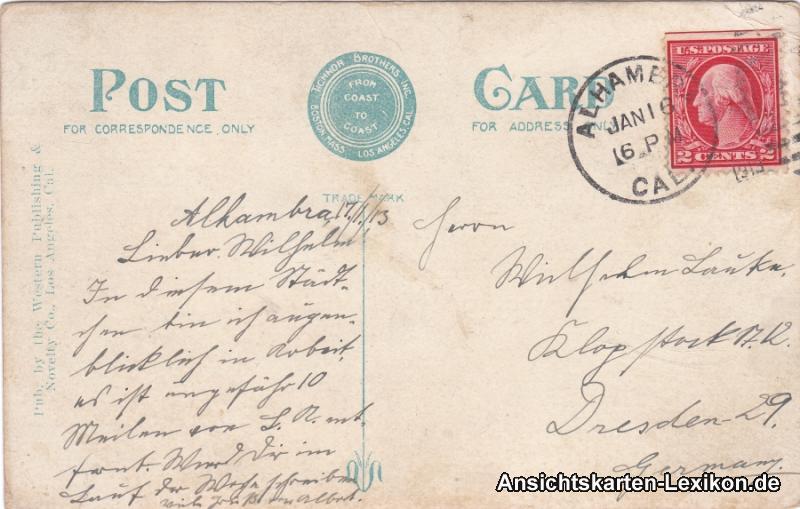 POST CARD
FOR CORRESPONDENCE ONLY
FOR ADDRESS ONLY
TICHNOR BROTHERS, INC.
FROM
COAST
TO
COAST
BOSTON, MASS. LOS ANGELES, CAL.
TRADE MARK
Pub. by the Western Publishing &
Novelty Co., Los Angeles, Cal.
U.S. POSTAGE
2 CENTS 2
ALHAMBRA
JAN 16
6 P M
CAL.
Alhambra, 17/1/13
Lieber Wilhelm!
In diesem Städt-
chen bin ich augen-
blicklich in Arbeit,
es ist ungefähr 10
Meilen von L. A. ent-
fernt. Werd Dir im
Lauf der Woche schreiben
viele Grüße von Albert.
Herrn
Wilhelm Lauke.
Klopstock 12.
Dresden-29.
Germany.
Ansichtskarten-Lexikon.de